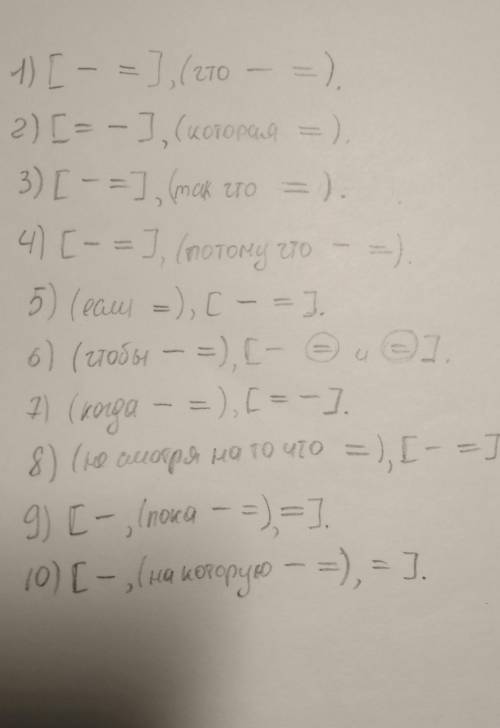 1) [ – = ], (что – = ).
2) [ = – ], (которая = ).
3) [ – = ], (так что = ).
4) [ – = ], (потому что – = ).
5) (если = ), [ – = ].
6) (чтобы – = ), [ – = и = ].
7) (когда – = ), [ = – ].
8) (не смотря на то что = ), [ – = ]
9) [ – , (пока – = ), = ].
10) [ – , (на которую – = ), = ].